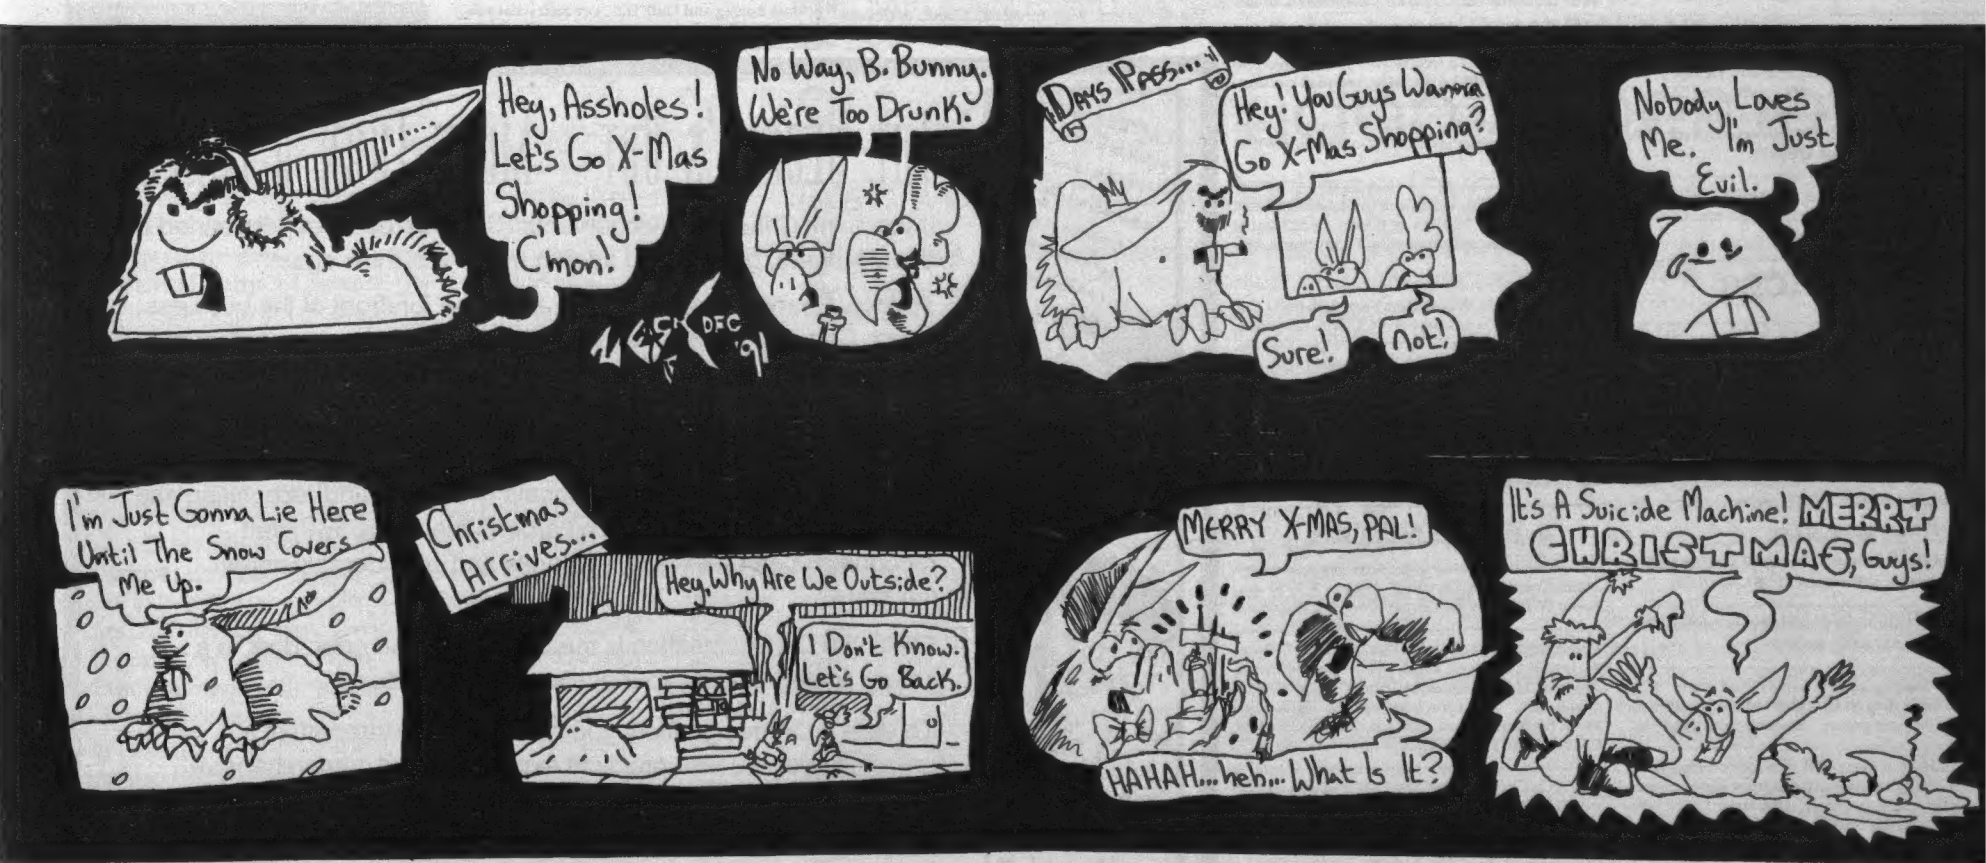 Hey, Assholes!
Let's Go X-Mas
Shopping!
C'mon!
No Way, B. Bunny.
We're Too Drunk.
DEC
'91
Days Pass...
Hey! You Guys Wanna
Go X-Mas Shopping?
Sure!
Not!
Nobody Loves
Me. I'm Just
Evil.
I'm Just Gonna Lie Here
Until The Snow Covers
Me Up.
Christmas
Arrives...
Hey, Why Are We Outside?
I Don't Know.
Let's Go Back.
MERRY X-MAS, PAL!
HAHAH...heh... What Is It?
It's A Suicide Machine! MERRY
CHRISTMAS, Guys!